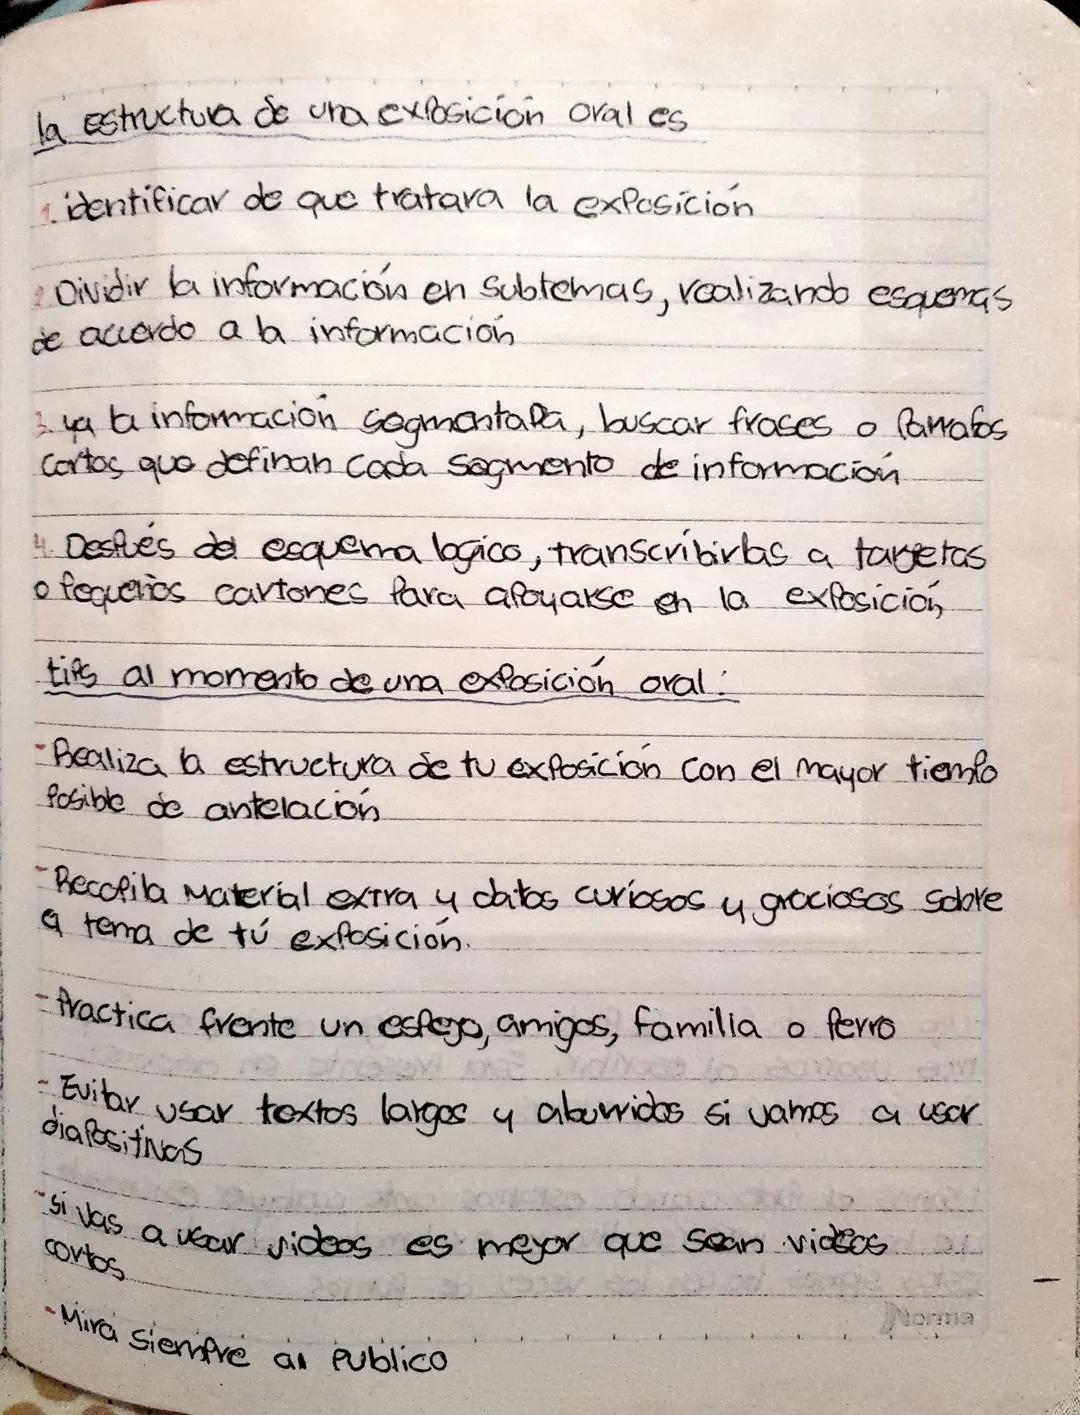 la estructura de una exposición oral es
1. identificar de que tratara la exposición
2 Dividir la información en subtemas, realizando esquemas
de acuerdo a la información
3 ya la información segmentada, buscar frases o parrafos
cortos que definan cada segmento de información
4. Después del esquema logico, transcribirlas a targetas
o pequeños cartones para apoyarse en la exposición
tips al momento de una exposición oral:
- Realiza la estructura de tu exposición con el mayor tiempo
posible de antelación
- Recopila material extra y datos curiosos y graciosos sobre
a tema de tú exposición.
- Practica frente un espego, amigos, familia o perro
- Evitar usar textos largos y aburridos si vamos a usar
diapositivas
- si vas a usar videos es mejor que sean videos
cortos
Norma
- Mira siempre al publico